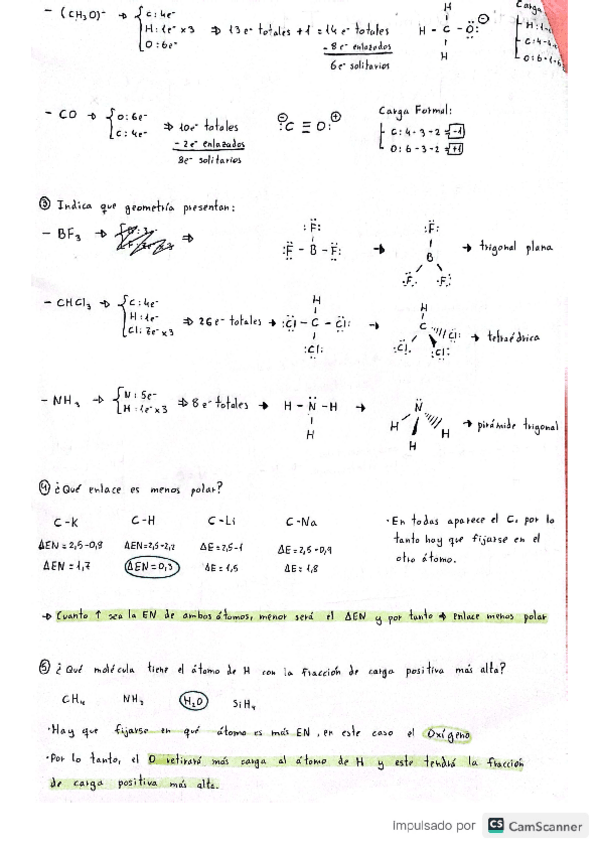 - (CH3O)- → { C: 4e-
H: 1e- x3 ⇒ 13e- totales + 1 = 14 e- totales
O: 6e-
- 8 e- enlazados
6e- solitarios
H
H - C - Ö: ⊖
H
Carga
H: 1-
C: 4-4
O: 6-1-6
- CO → { O: 6e-
C: 4e- ⇒ 10e- totales
- 2e- enlazados
8e- solitarios
⊖ :C ≡ O: ⊕
Carga Formal:
C: 4-3-2 = -1
O: 6-3-2 = +1
③ Indica que geometría presentan:
- BF3 → ⇒
:F:
:F - B - F:
→
:F:
B
:F. .F:
→ trigonal plana
- CHCl3 → { C: 4e-
H: 1e-
Cl: 7e- x3
⇒ 26e- totales →
H
:Cl - C - Cl:
:Cl:
→
H
C
:Cl. :Cl: Cl:
→ tetraédrica
- NH3 → { N: 5e-
H: 1e- x3
⇒ 8 e- totales → H - N - H
H
→
N
H H
H
→ pirámide trigonal
④ ¿Qué enlace es menos polar?
C-K C-H C-Li C-Na
ΔEN = 2,5-0,8 ΔEN = 2,5-2,2 ΔE = 2,5-1 ΔE = 2,5-0,9
ΔEN = 1,7 ΔEN = 0,3 ΔE = 1,5 ΔE = 1,8
· En todas aparece el C, por lo
tanto hay que fijarse en el
otro átomo.
→ Cuanto ↑ sea la EN de ambos átomos, menor será el ΔEN y por tanto → enlace menos polar
⑤ ¿Qué molécula tiene el átomo de H con la fracción de carga positiva más alta?
CH4 NH3 H2O SiH4
· Hay que fijarse en qué átomo es más EN, en este caso el Oxígeno
· Por lo tanto, el O retirará más carga al átomo de H y este tendrá la fracción
de carga positiva más alta.
Impulsado por CS CamScanner